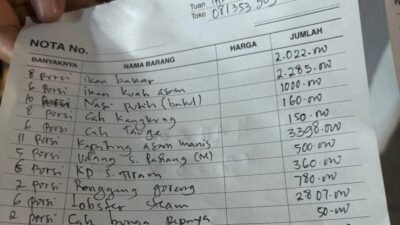 Tuan
Toko 081353 909
NOTA No.
BANYAKNYA NAMA BARANG HARGA JUMLAH
8 porsi ikan bakar 2.022.000
6 porsi ikan kuah asam 2.285.000
10 porsi Nasi Putih (bakul) 1000.000
8 porsi Cah Kangkung 160.000
6 porsi Cah Tauge 150.000
11 porsi Kepiting Asam manis 3398.000
5 porsi Udang S. Padang (M) 500.000
6 porsi KP S. TIRAM 360.000
2 porsi goreng 780.000
6 porsi lobster steam 2807.000
2 porsi Cah bunga Pepaya 50.000